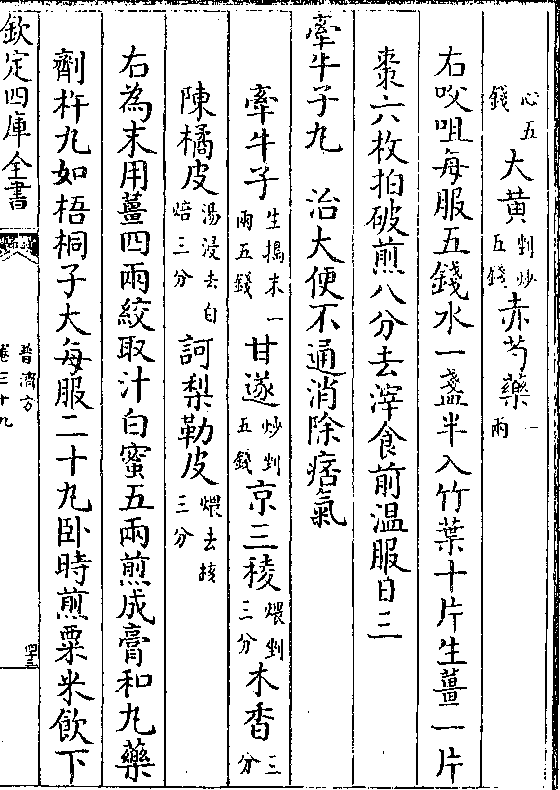 心五錢大黄剉炒五錢赤芍藥一兩
右㕮咀每服五錢水一盞半入竹葉十片生薑一片
棗六枚拍破煎八分去滓食前温服日三
牽牛子丸　治大便不通消除痞氣
牽牛子生搗末一兩五錢甘遂炒剉五錢京三稜煨剉三分木香三分
陳橘皮湯浸去白焙三分訶梨勒皮煨去核三分
右為末用薑四兩絞取汁白蜜五兩煎成膏和丸藥
劑杵丸如梧桐子大每服二十丸卧時煎粟米飲下
欽定四庫全書
普濟方
卷三十九